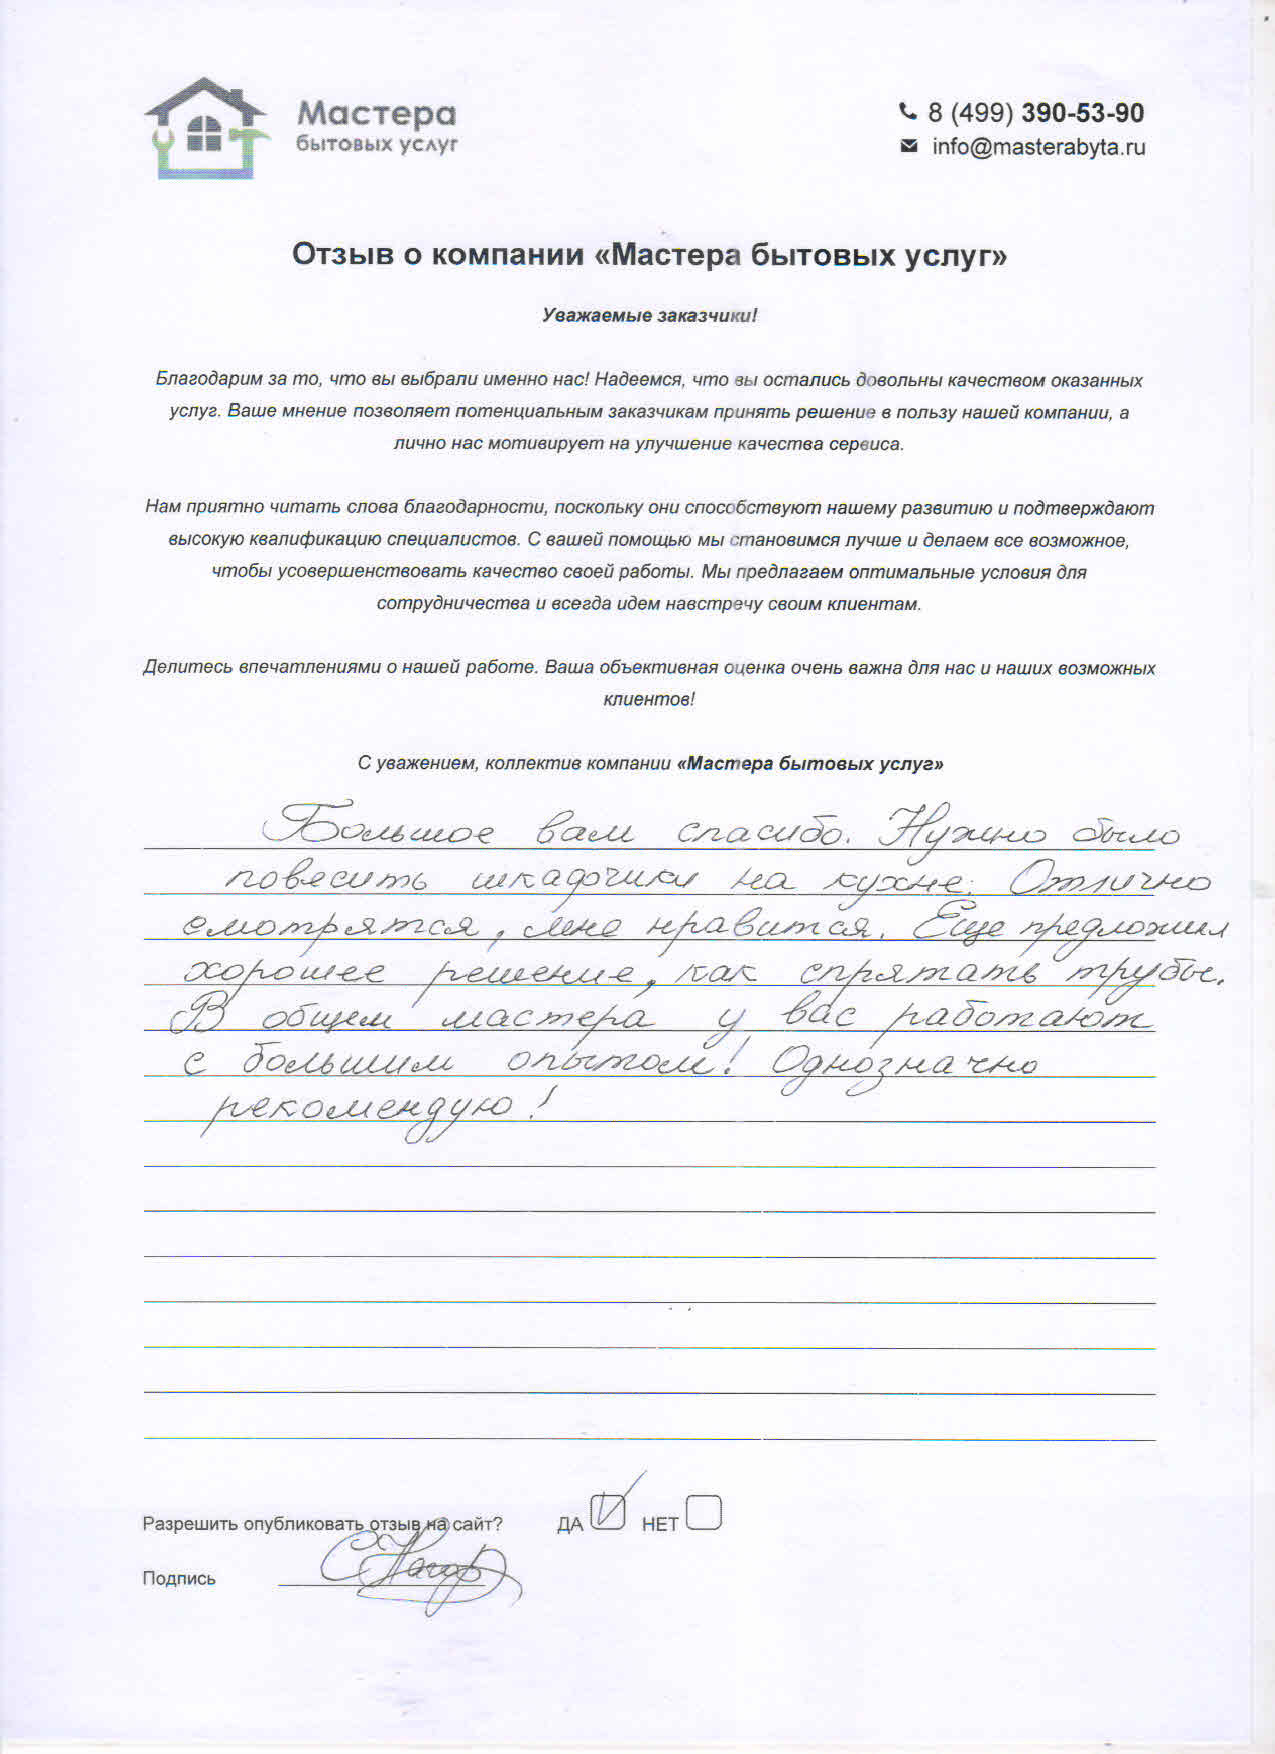 Мастера
бытовых услуг
8 (499) 390-53-90
info@masterabyta.ru
Отзыв о компании «Мастера бытовых услуг»
Уважаемые заказчики!
Благодарим за то, что вы выбрали именно нас! Надеемся, что вы остались довольны качеством оказанных
услуг. Ваше мнение позволяет потенциальным заказчикам принять решение в пользу нашей компании, а
лично нас мотивирует на улучшение качества сервиса.
Нам приятно читать слова благодарности, поскольку они способствуют нашему развитию и подтверждают
высокую квалификацию специалистов. С вашей помощью мы становимся лучше и делаем все возможное,
чтобы усовершенствовать качество своей работы. Мы предлагаем оптимальные условия для
сотрудничества и всегда идем навстречу своим клиентам.
Делитесь впечатлениями о нашей работе. Ваша объективная оценка очень важна для нас и наших возможных
клиентов!
С уважением, коллектив компании «Мастера бытовых услуг»
Большое вам спасибо. Нужно было
повесить шкафчики на кухне. Отлично
смотрятся, мне нравится. Еще предложил
хорошее решение, как спрятать трубы.
В общем мастера у вас работают
с большим опытом! Однозначно
рекомендую!
Разрешить опубликовать отзыв на сайт? ДА НЕТ
Подпись